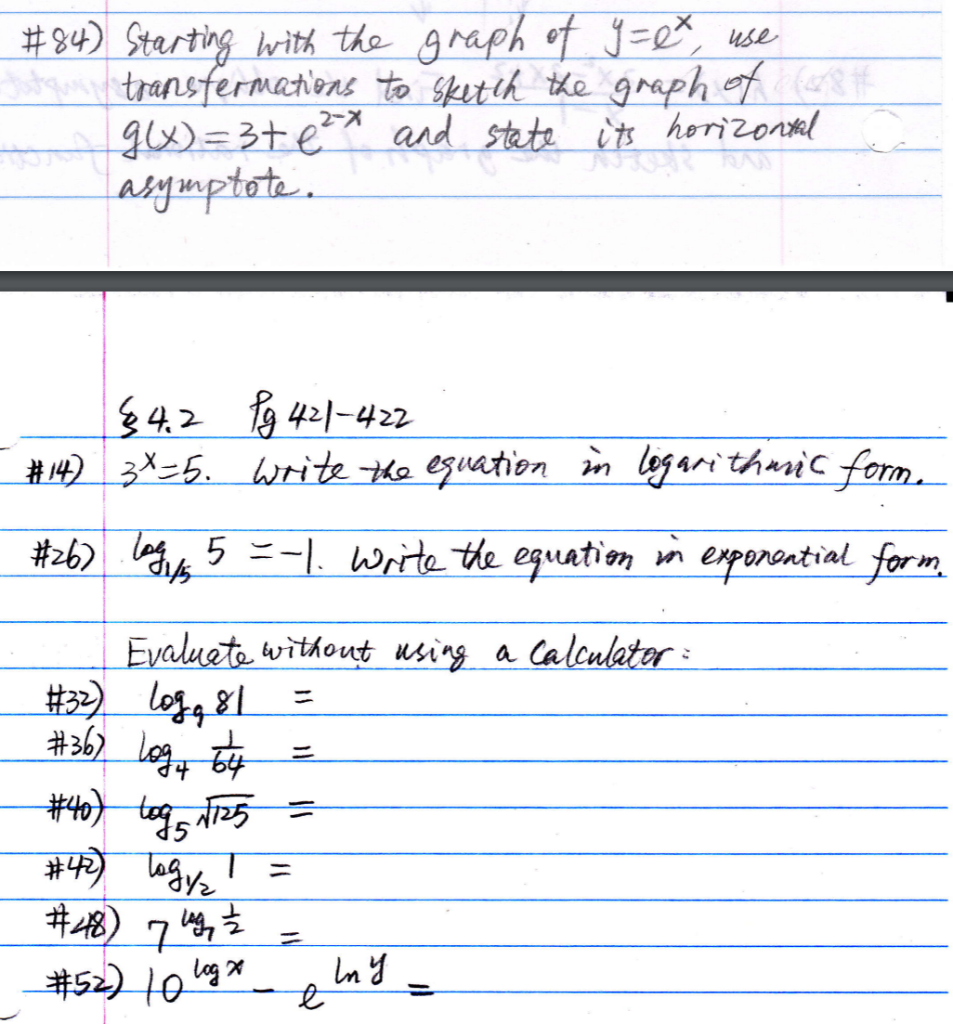 #84) Starting with the graph of y=e^x, use
transformations to sketch the graph of
g(x)=3+e^{2-x} and state its horizontal
asymptote.
§4.2 Pg 421-422
#14) 3^x=5. Write the equation in logarithmic form.
#26) log_{1/5} 5 = -1. Write the equation in exponential form.
Evaluate without using a calculator:
#32) log_9 81 =
#36) log_4 1/64 =
#40) log_5 √125 =
#42) log_{1/2} 1 =
#48) 7^{log_7 1/2} =
#52) 10^{log x} - e^{ln y} =